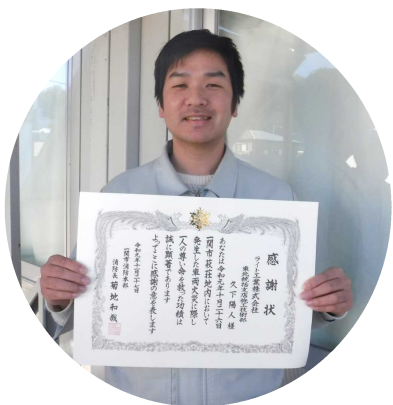 感謝状
ライト工業株式会社
東北統括支店施工技術部
久下陽人 様
あなたは令和元年十月二十六日
一関市萩荘地内において
発生した車両火災に際し
一人の尊い命を救った功績は
誠に顕著であります
よってここに感謝の意を表します
令和元年十二月二十七日
一関市消防本部
消防長 菊地和哉